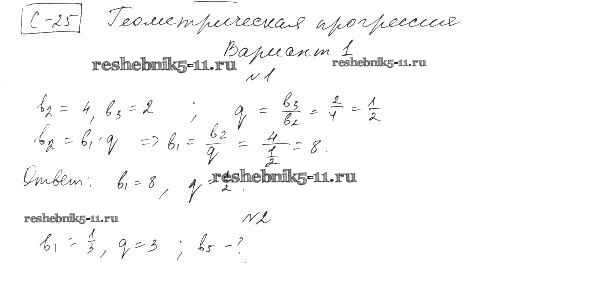 С-25 Геометрическая прогрессия
Вариант 1
reshebnik5-11.ru reshebnik5-11.ru
№1
b₂ = 4, b₃ = 2 ; q = b₃/b₂ = 2/4 = 1/2
b₂ = b₁·q => b₁ = b₂/q = 4/(1/2) = 8.
Ответ: b₁ = 8, q = 1/2. reshebnik5-11.ru
reshebnik5-11.ru №2
b₁ = 1/3, q = 3 ; b₅ - ?